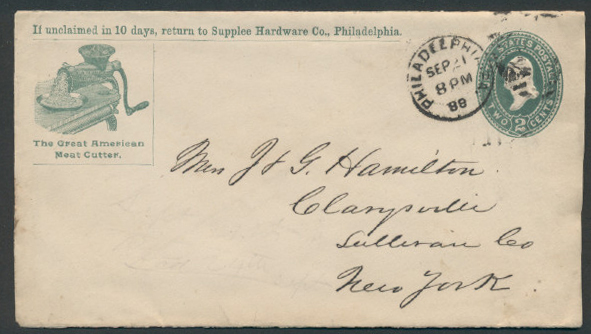 If unclaimed in 10 days, return to Supplee Hardware Co., Philadelphia.
The Great American
Meat Cutter.
PHILADELPHIA
SEP 21
8 PM
88
STATES POSTAGE
TWO 2 CENTS
J & G. Hamilton
Clarysville
Sullivan Co
New York